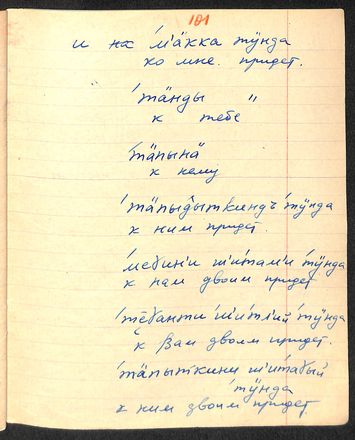 101
и на ма̄кка тӱнда
ко мне. придет.
тӓнды "
к тебе
тӓпынӓ
к нему
тӓпыдыткиндъ тӱнда
к ним придет.
шитами тӱнда
к нам двоим придет
тӱнда
к Вам двоим придет.
тӓпыткини
тӱнда
к ним двоим придет